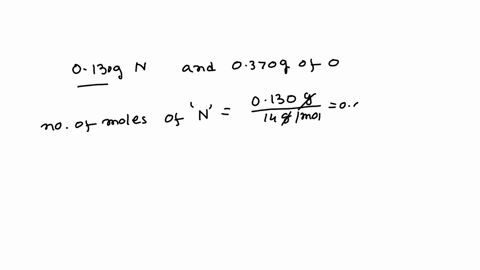 0.130g N and 0.370g of O
no. of moles of 'N' = 0.130 g / 14 g/mol = 0.